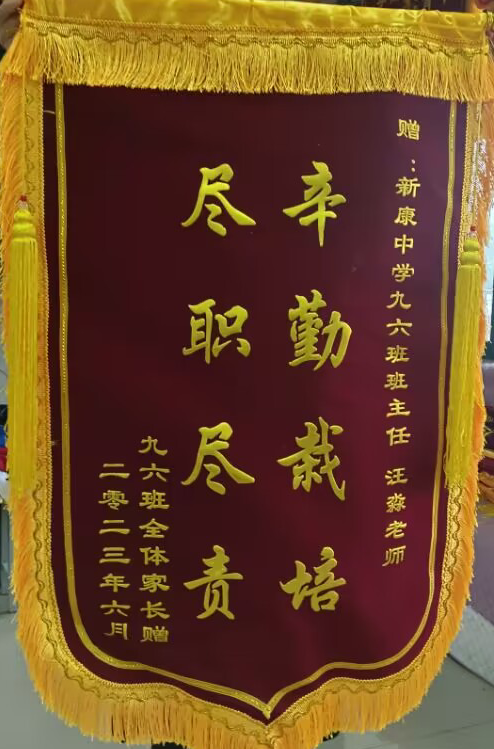 赠：新康中学九六班班主任 汪淼老师
辛勤栽培
尽职尽责
九六班全体家长赠
二零二三年六月